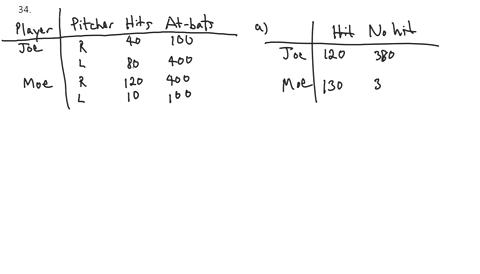 34.
Player Pitcher Hits At-bats
Joe R 40 100
L 80 400
Moe R 120 400
L 10 100
a)
Hit No hit
Joe 120 380
Moe 130 3